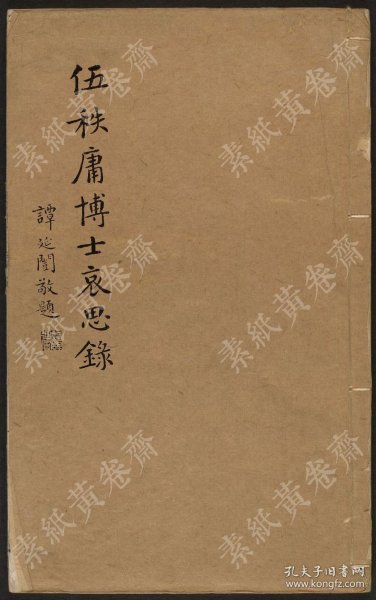 伍秩庸博士哀思錄
譚延闓敬題
素紙黃卷齋
素紙黃卷齋
素紙黃卷齋
素紙黃卷齋
素紙黃卷齋
素紙黃卷齋
孔夫子旧书网
www.kongfz.com